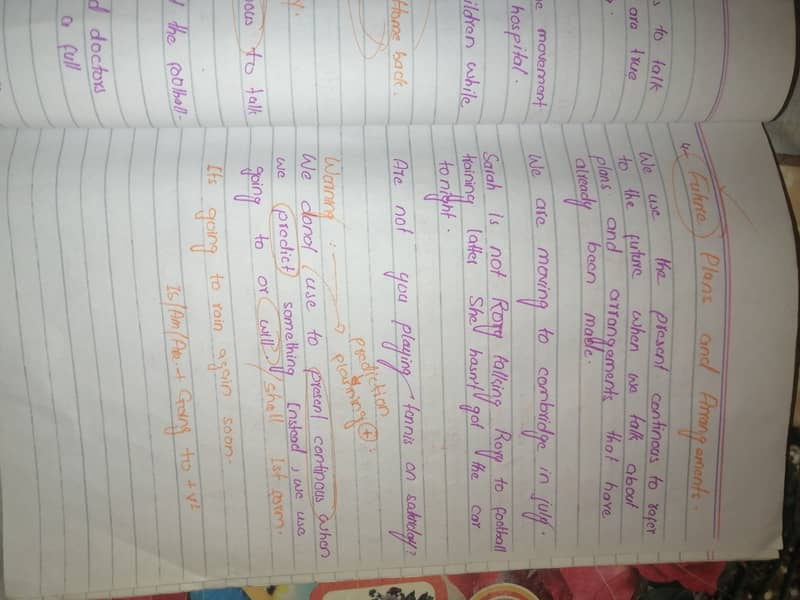 s to talk
are true
e movement
hospital.
ildren while
Home back.
y.
nous to talk
the football-
d doctors
a full
4- Future Plans and Arrangements.
We use the present continous to rafer
to the future when we talk about
plans and arrangements that have
already been made.
We are moving to cambridge in july.
Sarah is not Rory talking Rory to football
training latter She hasn't got the car
tonight.
Are not you playing tennis on saturday?
prediction
planning +.
Warning :
We donot use to present continous when
we predict something Instead, we use
going to or will / shell 1st form.
Its going to rain again soon.
Is/Am/Are + Going to + V¹